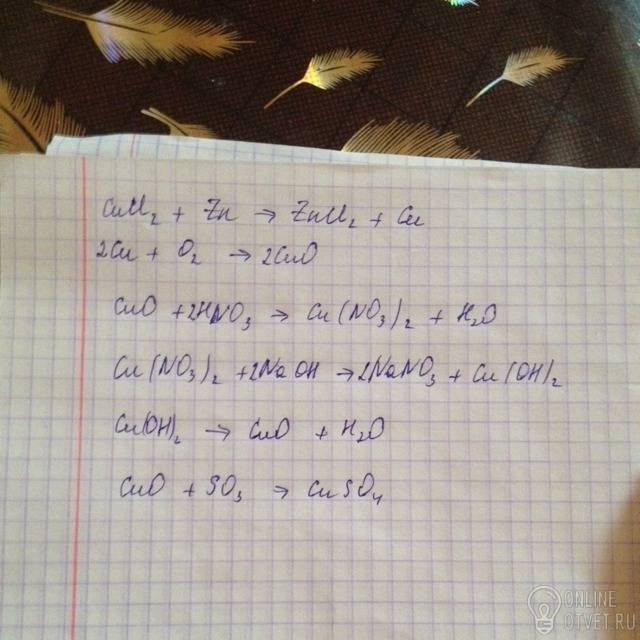 CuCl₂ + Zn → ZnCl₂ + Cu
2Cu + O₂ → 2CuO
CuO + 2HNO₃ → Cu(NO₃)₂ + H₂O
Cu(NO₃)₂ + 2NaOH → 2NaNO₃ + Cu(OH)₂
Cu(OH)₂ → CuO + H₂O
CuO + SO₃ → CuSO₄
ONLINE
OTVET.RU